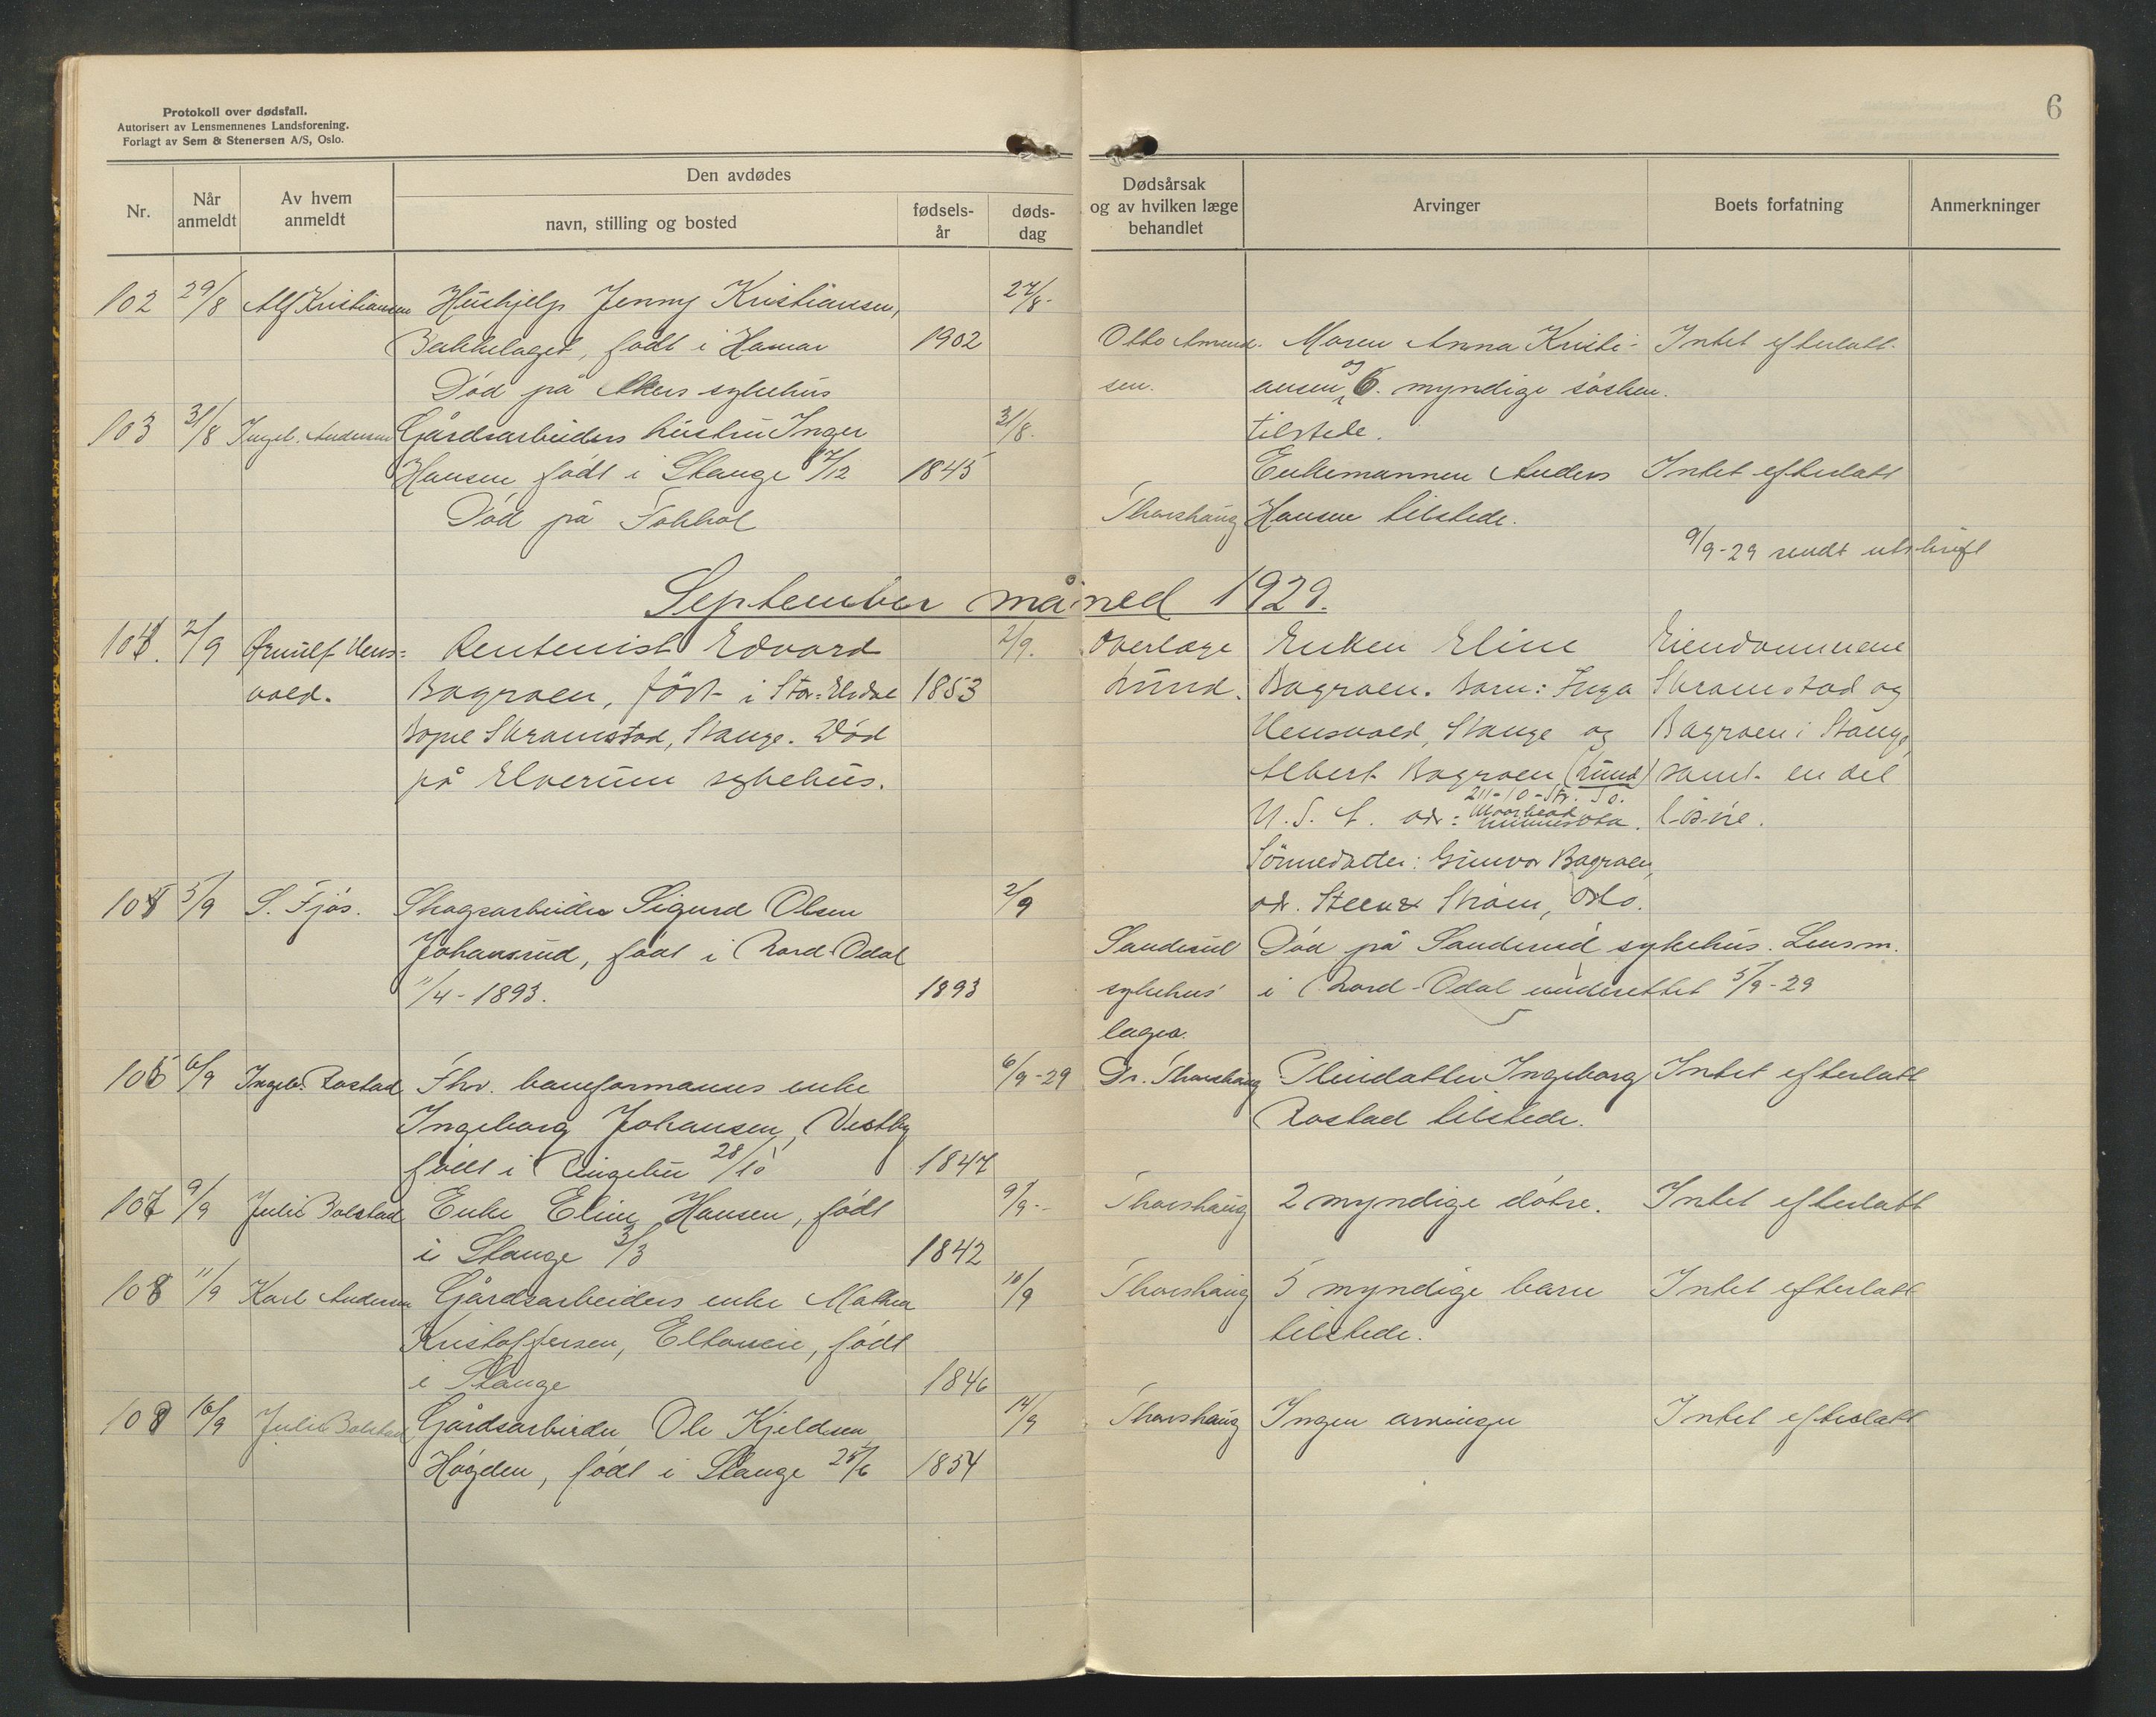 Protokoll over dødsfall.
Autorisert av Lensmennenes Landsforening.
Forlagt av Sem & Stenersen A/S, Oslo.
6
Nr.
Når anmeldt
Av hvem anmeldt
Den avdødes
navn, stilling og bosted
fødsels-år
døds-dag
Dødsårsak og av hvilken læge behandlet
Arvinger
Boets forfatning
Anmerkninger
102 29/8 Alf Kristiansen Hushjelp Jenny Kristiansen, 27/8-
Bakkelaget, født i Hamar 1902 Otto Amund- Maren Anna Kristi- Intet efterlatt.
Død på Akers sykehus sen. ansen og 6. myndige søsken.
103 31/8 Ingeb. Andersen Gårdsarbeiders hustru Inger 31/8. tilstede.
Hansen født i Stange 17/12 1845 Enkemannen Anders Intet efterlatt
Død på Tokhol Thorshaug Hansen tilstede.
9/9-29 sendt utskrift
September måned 1929.
104. 2/9 Ørnulf Uens- Rentenist Edvard 2/9. Overlæge Enken Eline Eiendommene
vold. Bagroen, født i Stor-Elvdal 1853 Lund. Bagroen. Barn: Inga Skramstad og
Bopel Skramstad, Stange. Død Uensvold, Stange og Bagroen i Stange,
på Elverum sykehus. Albert Bagroen (Lund) samt en del
U.S.A. adr: 211-10-Str. So. Moorhead Minnesota. løsøre.
Sønnedatter: Gunvor Bagroen,
adr. Steen & Strøm, Oslo.
105 5/9 S. Fjøs. Skogsarbeider Sigurd Olsen 2/9
Johansrud, født i Nord-Odal Sanderud Død på Sanderud sykehus. Lensm.
11/4-1893. 1893 sykehus' i Nord-Odal underettet 5/9-29
læger.
106 6/9 Ingeb. Rostad Fhv. baneformanns enke 6/9-29 Dr. Thorshaug Pleidatter Ingeborg Intet efterlatt
Ingeborg Johansen, Vestby Rostad tilstede.
født i Ringebu 28/10 1847
107 9/9 Julie Bolstad Enke Eline Hansen, født 9/9- Thorshaug 2 myndige døtre. Intet efterlatt
i Stange 3/3 1842
108 11/9 Karl Andersen Gårdsarbeiders enke Mathea 10/9 Thorshaug 5 myndige barn Intet efterlatt
Kristoffersen, Eltoneie, født tilstede.
i Stange 1846
109 16/9 Julie Bolstad Gårdsarbeider Ole Kjeldsen 14/9 Thorshaug Ingen arvinger Intet efterlatt
Høgden, født i Stange 25/6 1854